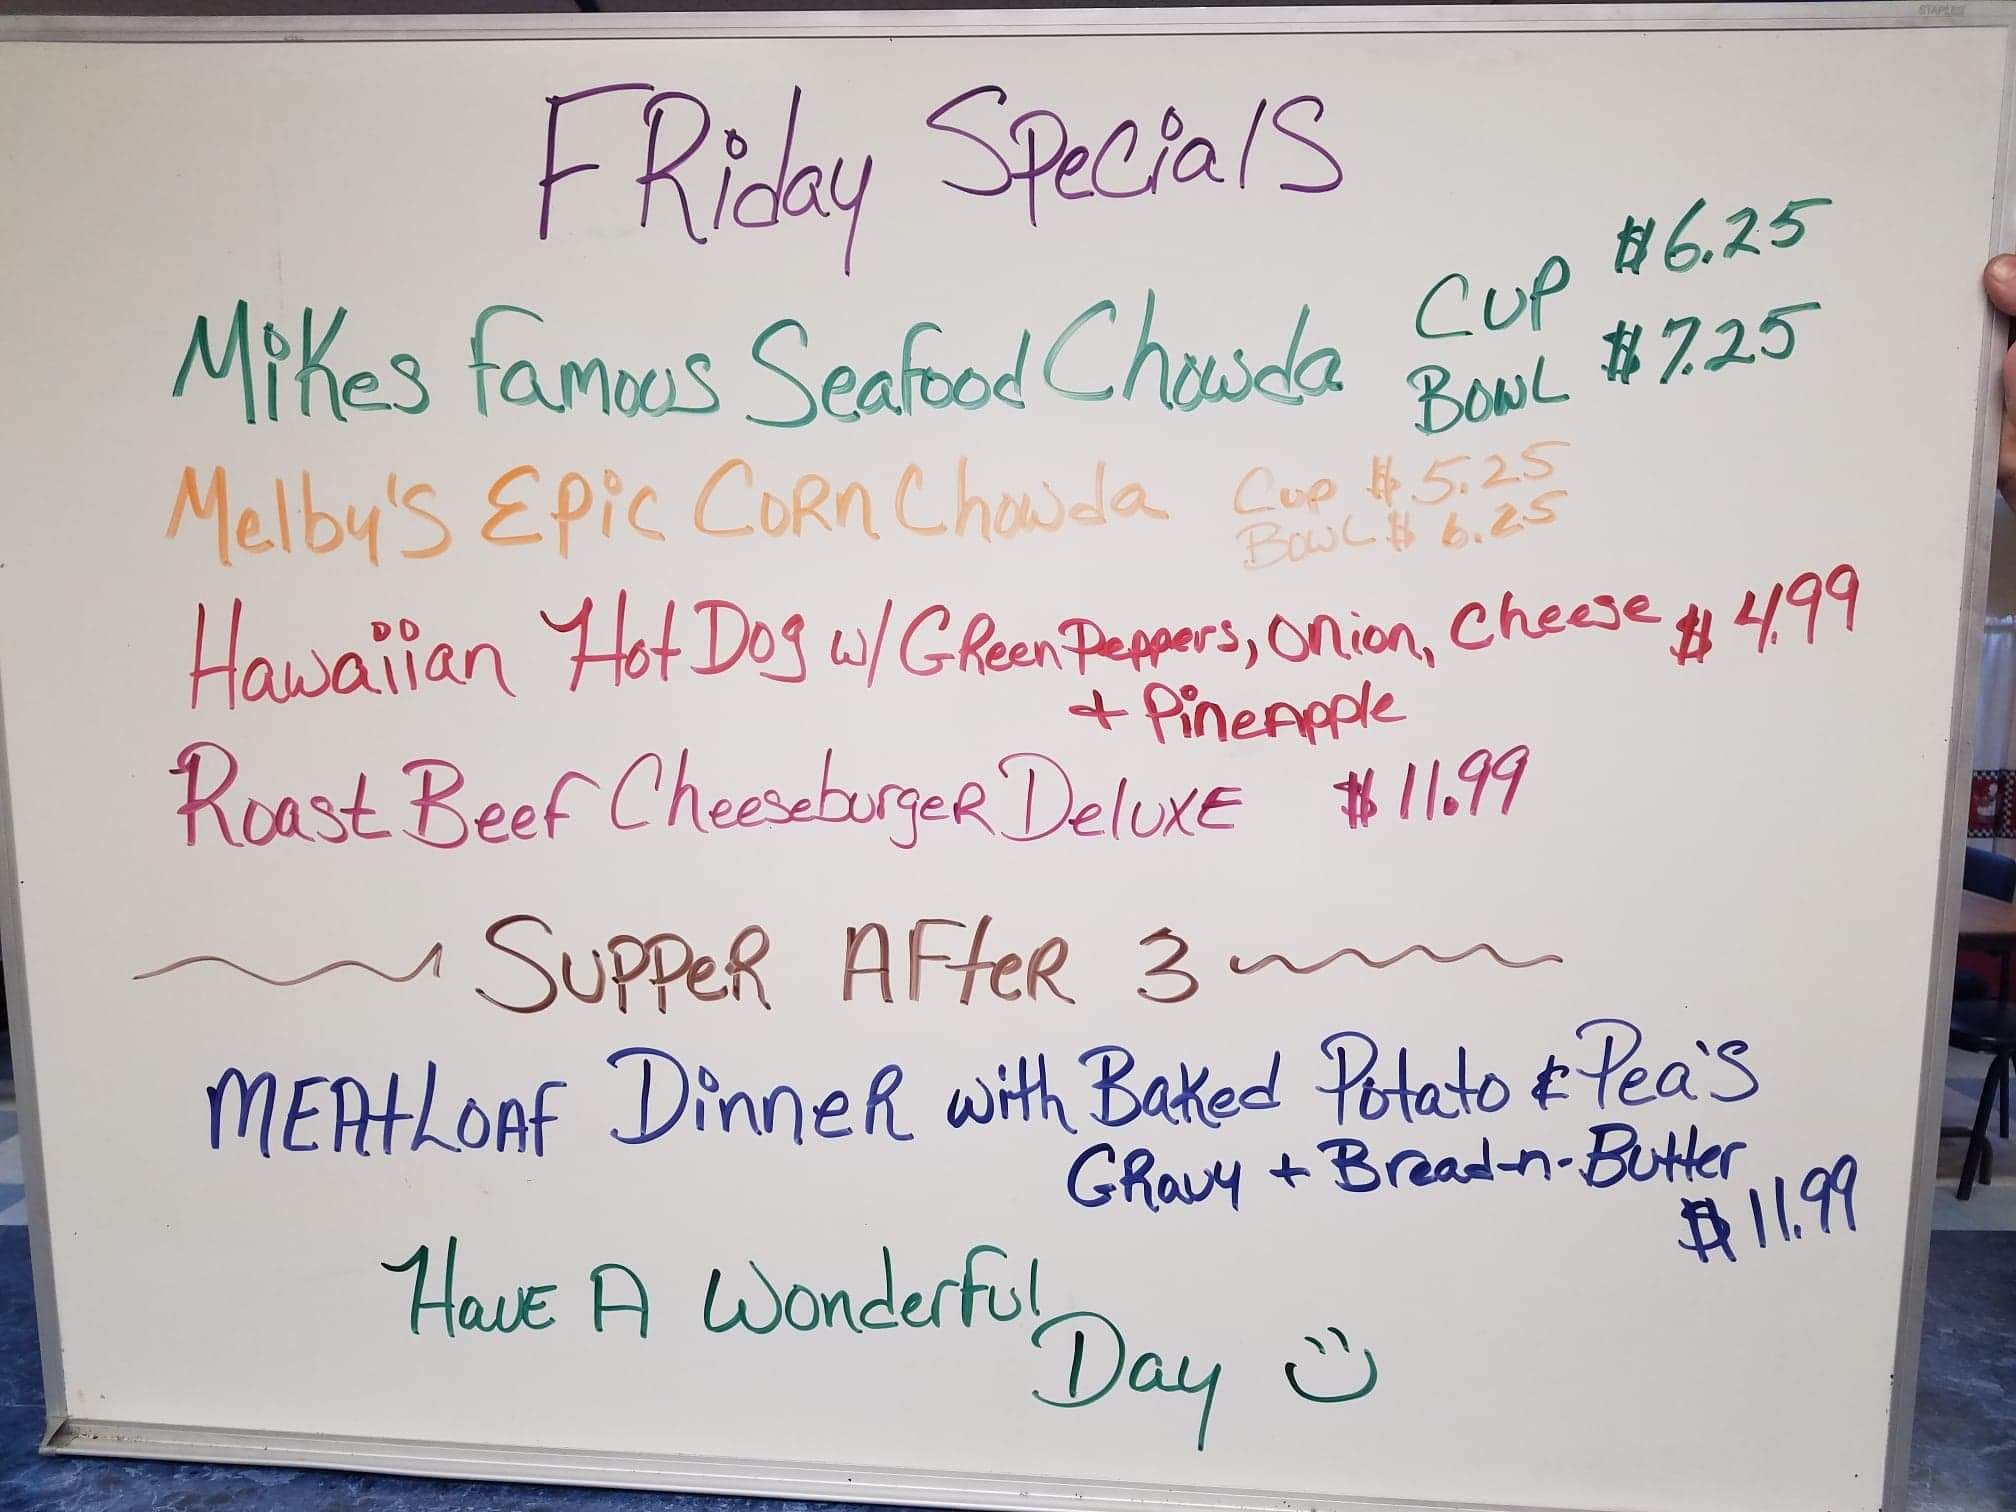 STAPLES
FRiday Specials
Mikes Famous Seafood Chowda CUP $6.25
BOWL $7.25
Melby's Epic CORN Chowda Cup $5.25
BOWL $6.25
Hawaiian Hot Dog w/ GReen Peppers, Onion, Cheese $4.99
+ PineApple
Roast Beef CheeseburgeR DeluxE $11.99
SUPPeR AFteR 3
MEAtLOAF DinneR with Baked Potato & Pea's
GRavy + Bread-n-Butter
$11.99
HavE A Wonderful
Day